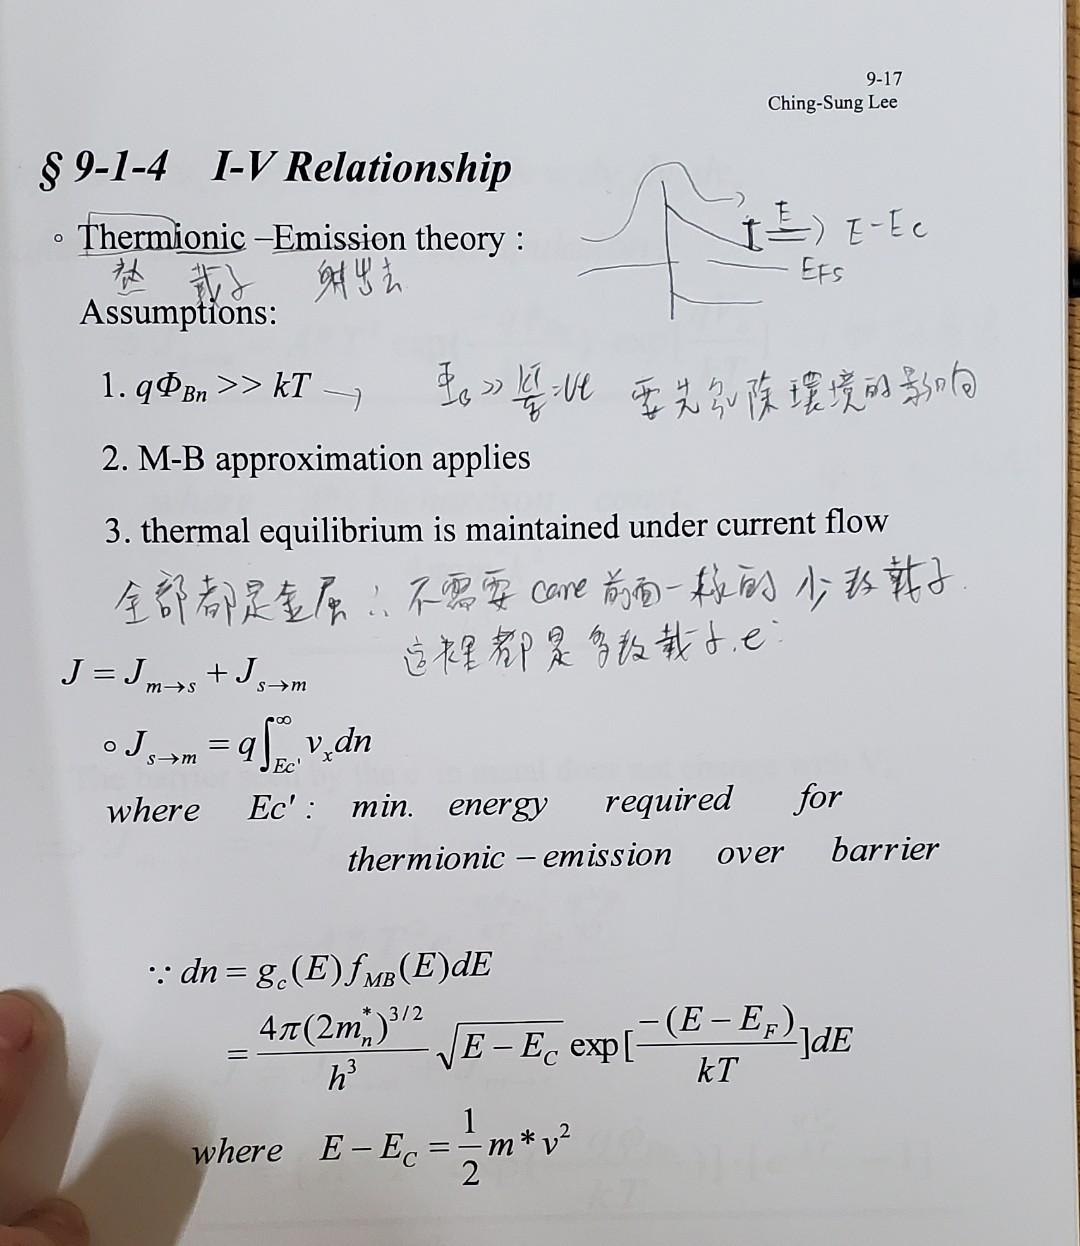 9-17
Ching-Sung Lee
§ 9-1-4 I-V Relationship
E
E-Ec
EFS
◦ Thermionic –Emission theory :
熱 載子 射出去
Assumptions:
1. qΦBn >> kT → ΦB >> kT/q = Vt 要先 除環境的影响
2. M-B approximation applies
3. thermal equilibrium is maintained under current flow
全部都是金属 ∴ 不需要 care 前面一樣的 少数載子.
這裡都是多数載子.e⁻
J = Jm→s + Js→m
◦ Js→m = q∫Ec'^∞ vx dn
where Ec' : min. energy required for
thermionic – emission over barrier
∵ dn = gc(E) fMB(E)dE
= 4π(2mn*)^3/2 / h³ √(E − EC) exp[−(E − EF) / kT]dE
where E − EC = 1/2 m * v²